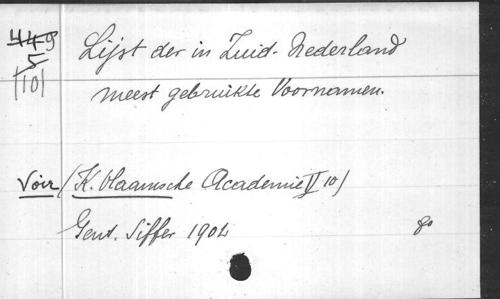 449
5
(10)
Lijst der in Zuid-Nederland
meest gebruikte Voornamen.
Voir (K. Vlaamsche Academie V 10)
Gent. Siffer 1904
8o